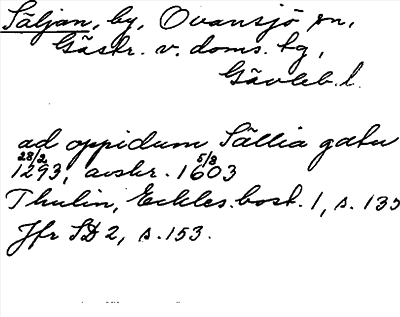 Säljan, by, Ovansjö sn,
Gästr. v. doms. tg,
Gävleb. l.
ad oppidum Sällia gatu
28/2 1293, avskr. 5/8 1603
Thulin, Eckles. bost. 1, s. 135
Jfr SD 2, s. 153.